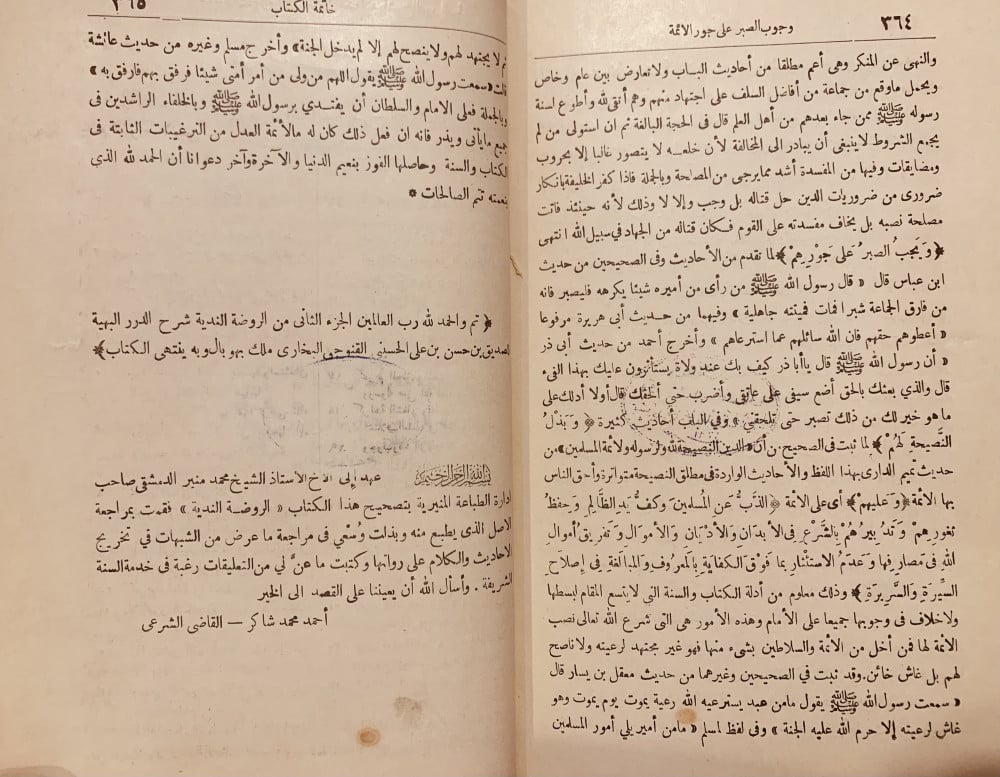 ٣٦٤
وجوب الصبر على جور الائمة
والنهى عن المنكر وهى أعم مطلقا من أحاديث الباب ولا تعارض بين عام وخاص
ويحمل ماوقع من جماعة من أفاضل السلف على اجتهاد منهم وهم أتقى لله وأطوع لسنة
رسوله ﷺ ممن جاء بعدهم من أهل العلم قال فى الحجة البالغة ثم ان استولى من لم
يجمع الشروط لاينبغى أن يبادر الى المخالفة لأن خلعه لا يتصور غالبا إلا بحروب
ومضايقات وفيها من المفسدة أشد مما يرجى من المصلحة وبالجملة فاذا كفر الخليفة بانكار
ضرورى من ضروريات الدين حل قتاله بل وجب وإلا لا وذلك لأنه حينئذ فاتت
مصلحة نصبه بل يخاف مفسدته على القوم فكان قتاله من الجهاد في سبيل الله انتهى
﴿ وَيَجبُ الصبرُ عَلى جَوْرِهِمْ ﴾ لما تقدم من الأحاديث وفى الصحيحين من حديث
ابن عباس قال « قال رسول الله ﷺ من رأى من أميره شيئا يكرهه فليصبر فانه
من فارق الجماعة شبرا فمات فميتته جاهلية » وفيهما من حديث أبى هريرة مرفوعا
« أعطوهم حقهم فان الله سائلهم عما استرعاهم » وأخرج أحمد من حديث أبى ذر
« أن رسول الله ﷺ قال ياأباذر كيف بك عند ولاة يستأثرون عليك بهذا الفىء
قال والذي بعثك بالحق أضع سيفى على عاتقى وأضرب حتى ألحقك قال أولا أدلك على
ما هو خير لك من ذلك تصبر حتى تلحقنى » وفي الباب أحاديث كثيرة ﴿ وَبَذْلُ
النَّصيحة لَهُمْ ﴾ لما ثبت فى الصحيح من أن « الدين النصيحة لله ولرسوله ولائمة المسلمين » من
حديث تميم الدارى بهذا اللفظ والأحاديث الواردة فى مطلق النصيحة متواترة وأحق الناس
بها الائمة ﴿ وَعليهمْ ﴾ أى على الائمة ﴿ الذَّبُّ عَنِ المُسلمينَ وَكفُّ يدِ الظَّالِمِ وَحِفظُ
ثغورِهِمْ وَتَدْبِيرُهُمْ بِالشَّرْعِ فى الأبدَانِ والأدْيَانِ والأموَالِ وَتَفرِيقُ أموالِ
اللهِ فى مصَارِفِها وَعَدَمُ الاستئثَارِ بِما فَوْقَ الكفايَةِ بِالمعْرُوفِ والمبالَغَةِ فى إصلاحِ
السِّيرَةِ والسَّرِيرَةِ ﴾ وذلك معلوم من أدلة الكتاب والسنة التى لايتسع المقام لبسطها
ولا خلاف فى وجوبها جميعا على الأمام وهذه الأمور هى التى شرع الله تعالى نصب
الائمة لها فمن أخل من الأئمة والسلاطين بشىء منها فهو غير مجتهد لرعيته ولا ناصح
لهم بل غاش خائن. وقد ثبت فى الصحيحين وغيرهما من حديث معقل بن يسار قال
« سمعت رسول الله ﷺ يقول مامن عبد يسترعيه الله رعية يموت يوم يموت وهو
غاش لرعيته إلا حرم الله عليه الجنة » وفى لفظ لمسلم « مامن أمير يلي أمور المسلمين
خاتمة الكتاب
٣٦٥
ثم لا يجتهد لهم ولا ينصح لهم إلا لم يدخل الجنة » وأخرج مسلم وغيره من حديث عائشة
قالت « سمعت رسول الله ﷺ يقول اللهم من ولى من أمر أمتى شيئا فرفق بهم فارفق به »
وبالجملة فعلى الامام والسلطان أن يقتدى برسول الله ﷺ وبالخلفاء الراشدين فى
جميع مايأتى ويذر فانه ان فعل ذلك كان له مالأئمة العدل من الترغيبات الثابتة فى
الكتاب والسنة وحاصلها الفوز بنعيم الدنيا والآخرة وآخر دعوانا أن الحمد لله الذى
بنعمته تتم الصالحات *
﴿ تم والحمد لله رب العالمين الجزء الثانى من الروضة الندية شرح الدرر البهية
لصديق بن حسن بن على الحسينى القنوجى البخارى ملك بهوبال وبه ينتهى الكتاب ﴾
بسم الله الرحمن الرحيم عهد إلى الاخ الأستاذ الشيخ محمد منير الدمشقى صاحب
ادارة الطباعة المنيرية بتصحيح هذا الكتاب « الروضة الندية » فقمت بمراجعة
الاصل الذى يطبع منه وبذلت وُسْعي فى مراجعة ما عرض من الشبهات في تخريج
الاحاديث والكلام على رواتها وكتبت ما عنَّ لي من التعليقات رغبة فى خدمة السنة
الشريفة . وأسأل الله أن يعيننا على القصد الى الخير
أحمد محمد شاكر — القاضى الشرعى